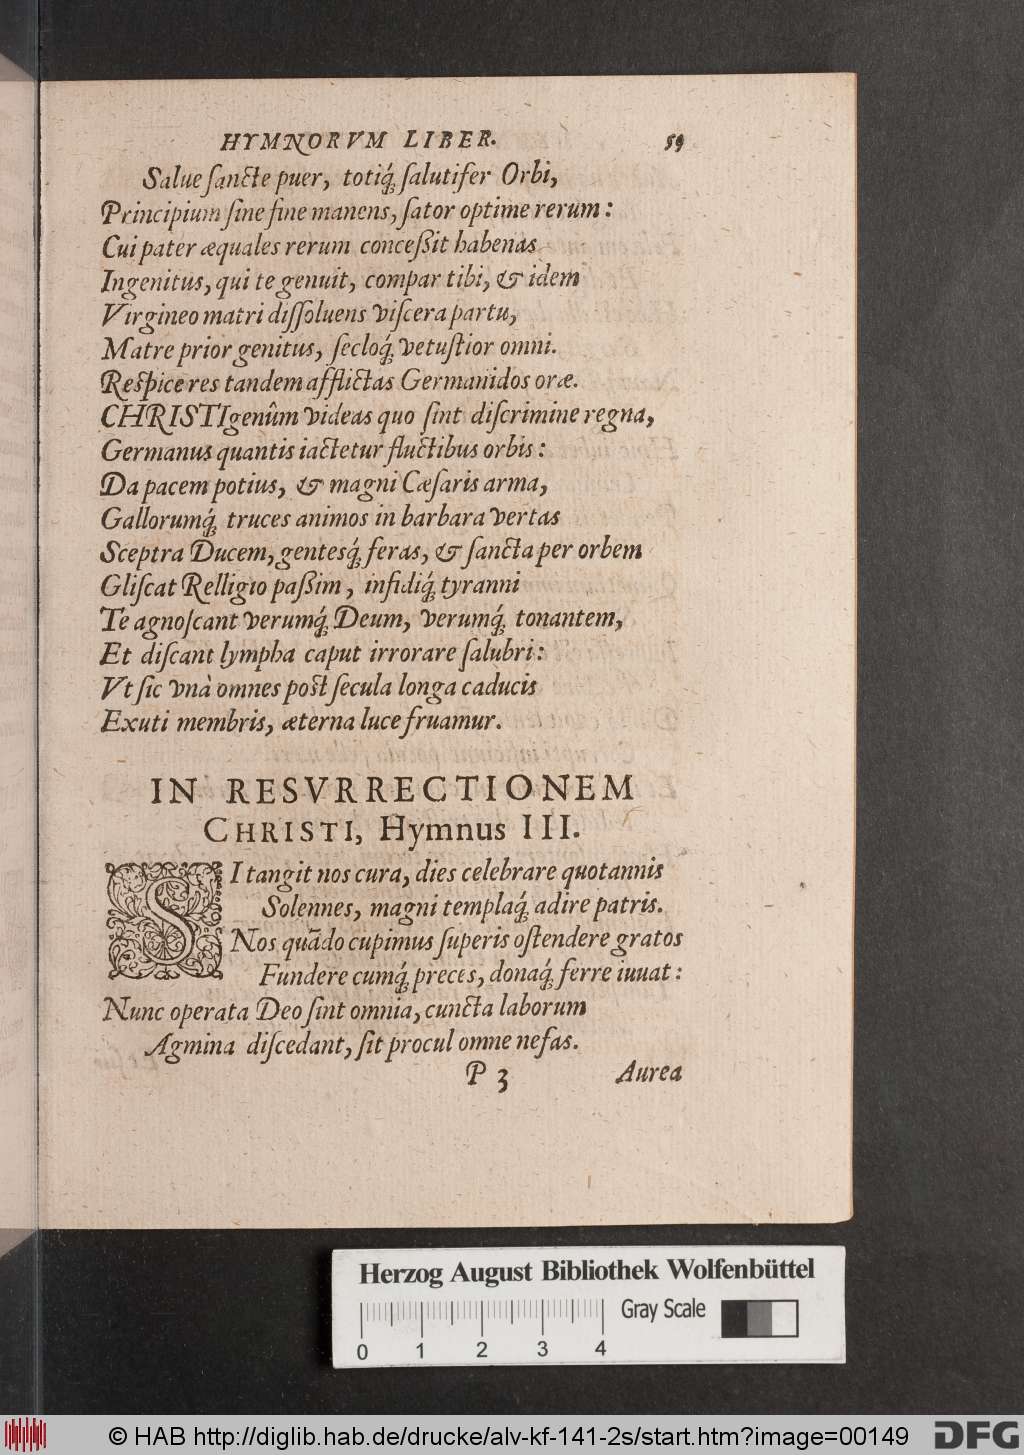 HYMNORVM LIBER. 59
Salue sancte puer, totiq́ue salutifer Orbi,
Principium sine fine manens, sator optime rerum:
Cui pater æquales rerum conceßit habenas
Ingenitus, qui te genuit, compar tibi, & idem
Virgineo matri dissoluens viscera partu,
Matre prior genitus, secloq́; vetustior omni.
Respice res tandem afflictas Germanidos oræ.
CHRISTIgenûm videas quo sint discrimine regna,
Germanus quantis iactetur fluctibus orbis:
Da pacem potius, & magni Cæsaris arma,
Gallorumq́; truces animos in barbara vertas
Sceptra Ducem, gentesq́; feras, & sancta per orbem
Gliscat Relligio paßim, infidiq́; tyranni
Te agnoscant verumq́; Deum, verumq́; tonantem,
Et discant lympha caput irrorare salubri:
Vt sic vnà omnes post secula longa caducis
Exuti membris, æterna luce fruamur.
IN RESVRRECTIONEM
CHRISTI, Hymnus III.
SI tangit nos cura, dies celebrare quotannis
Solennes, magni templaq́; adire patris.
Nos quãdo cupimus superis ostendere gratos
Fundere cumq́; preces, donaq́; ferre iuuat:
Nunc operata Deo sint omnia, cuncta laborum
Agmina discedant, sit procul omne nefas.
P 3 Aurea
Herzog August Bibliothek Wolfenbüttel
Gray Scale
0 1 2 3 4
© HAB http://diglib.hab.de/drucke/alv-kf-141-2s/start.htm?image=00149
DFG